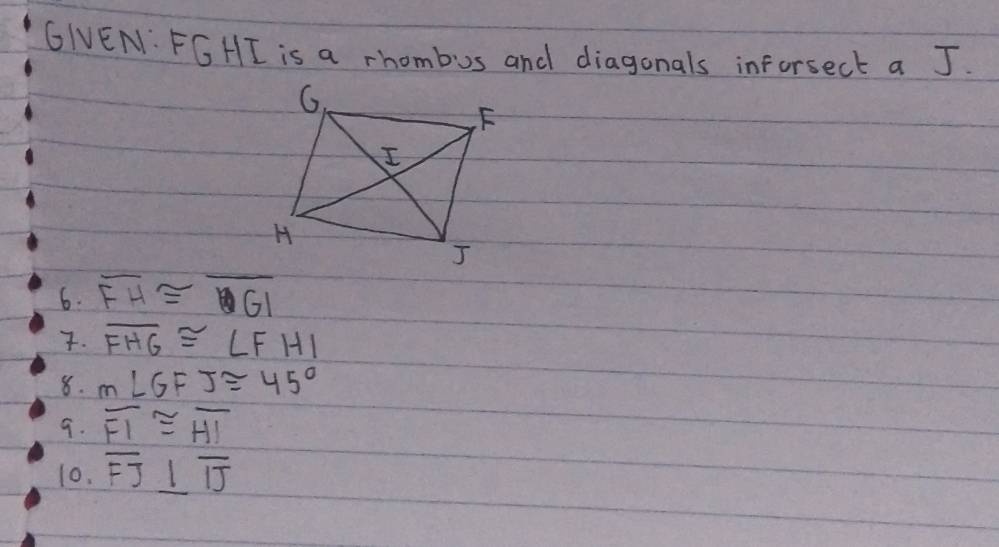 GIVEN: FGHI is a rhombus and diagonals inforsect a J.
G
F
I
H
J
6. F̅H̅ ≅ G̅I̅
7. F̅H̅G̅ ≅ ∠FHI
8. m∠GFJ ≅ 45°
9. F̅I̅ ≅ H̅I̅
10. F̅J̅ ⊥ I̅J̅